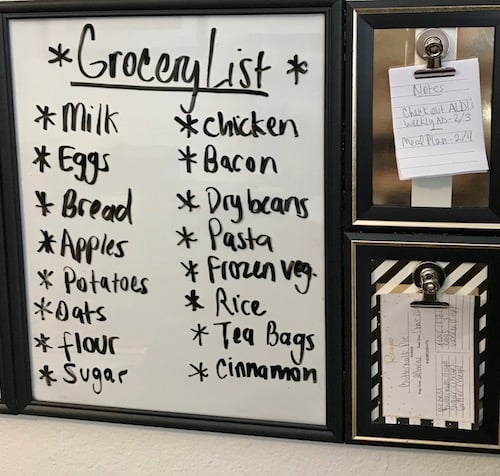 * Grocery List *
* Milk
* Eggs
* Bread
* Apples
* Potatoes
* Oats
* flour
* Sugar
* chicken
* Bacon
* Dry beans
* Pasta
* Frozen veg.
* Rice
* Tea Bags
* Cinnamon
Notes
Check out ALDI's
weekly AD - 2/3
Meal Plan - 2/4
Recipe
Buttermilk Pie